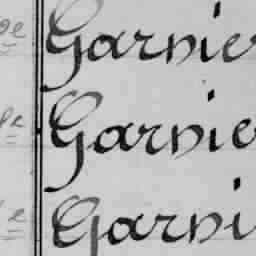 Garnie
Garnie
Garni